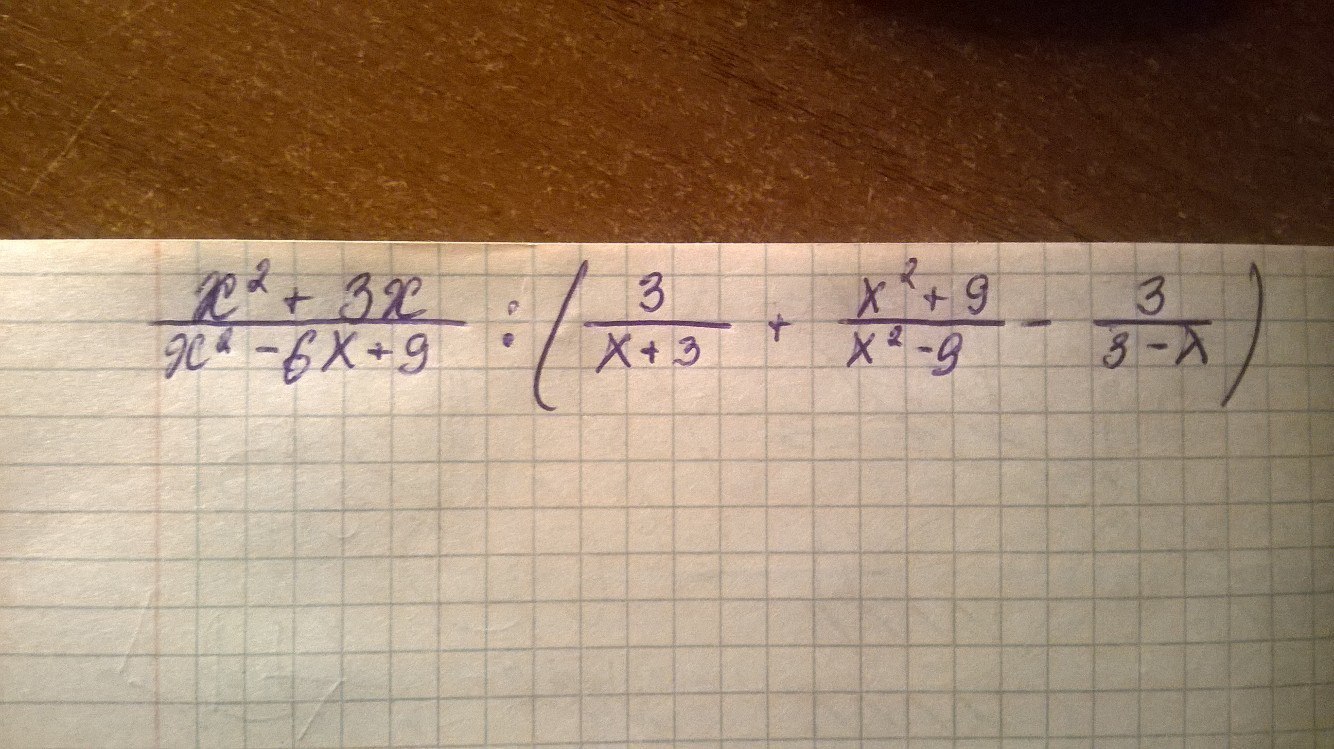 (x² + 3x)/(x² - 6x + 9) : (3/(x + 3) + (x² + 9)/(x² - 9) - 3/(3 - x))